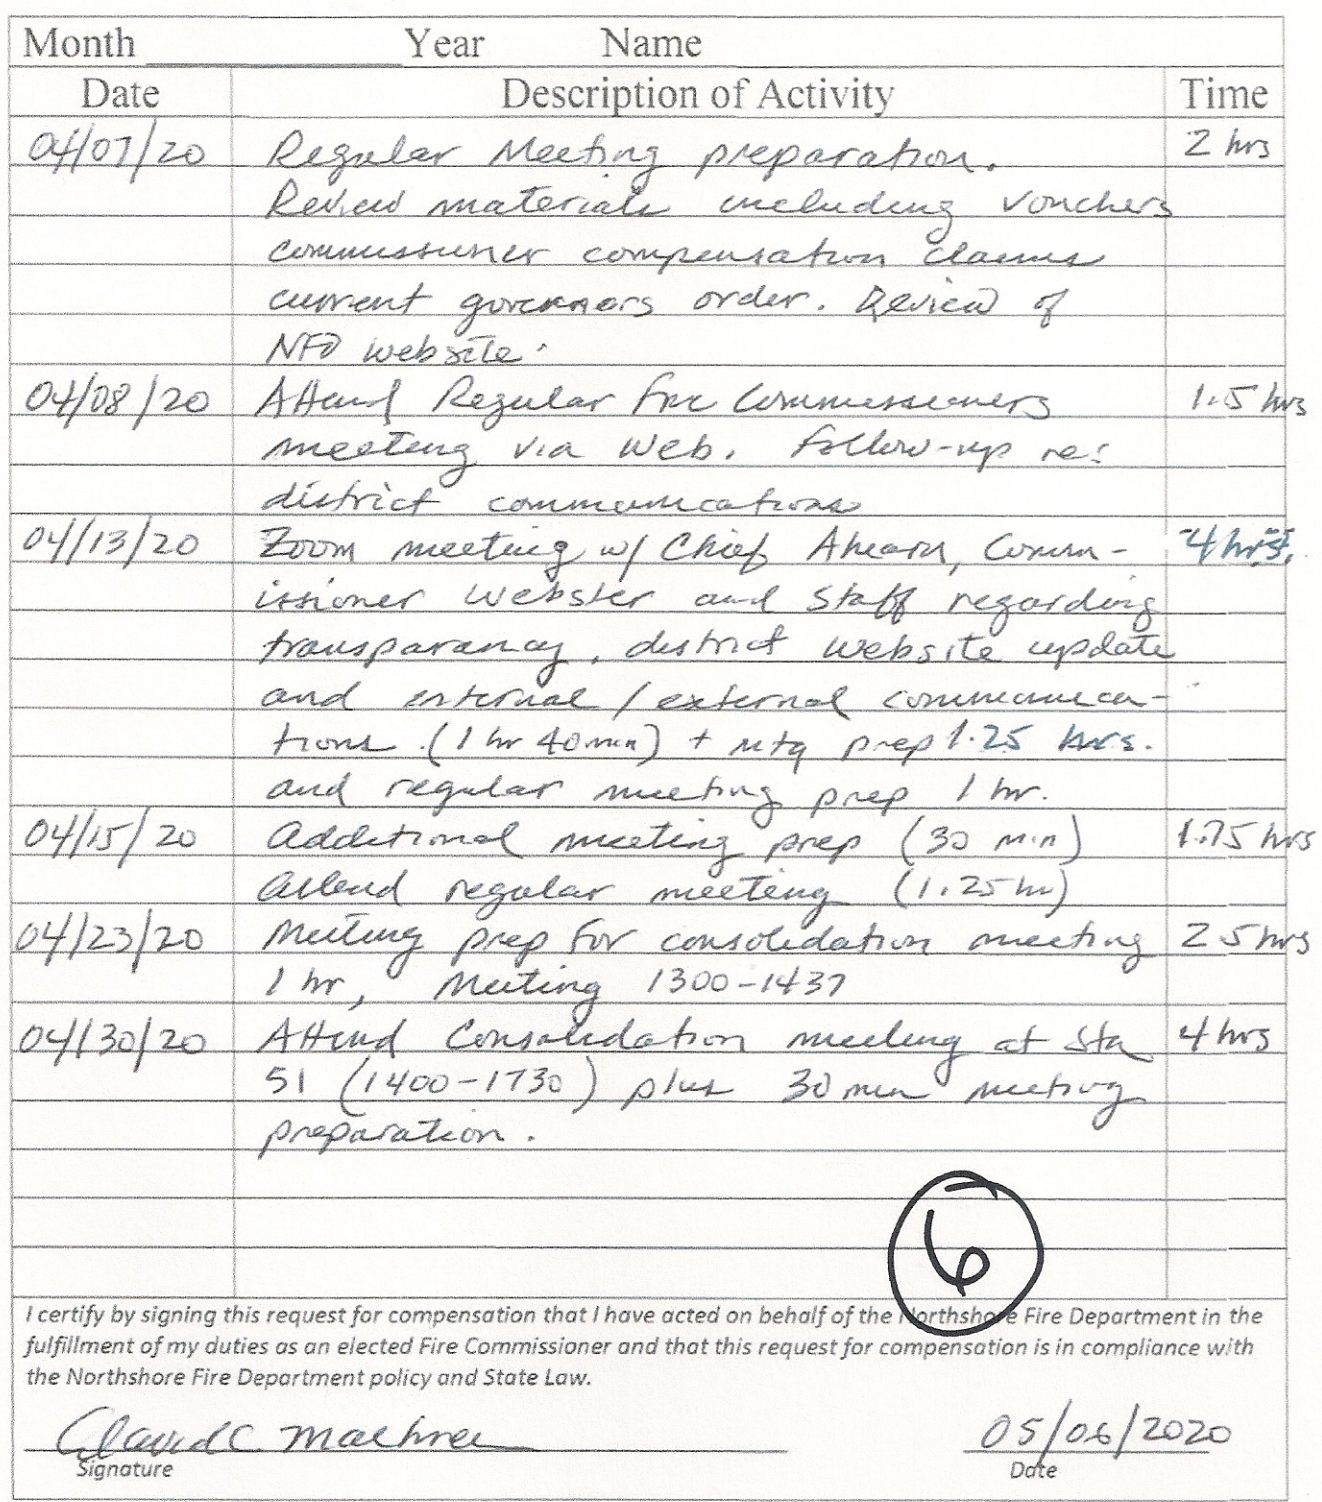 Month Year Name
Date Description of Activity Time
04/07/20 Regular Meeting preparation. 2 hrs
Review materials including vouchers
commissioner compensation claims
current governors order. Review of
NFD website.
04/08/20 Attend Regular Fire Commissioners 1.5 hrs
meeting via web. Follow-up re:
district communications
04/13/20 Zoom meeting w/ Chief Ahearn, Comm- 4 hrs.
issioner Webster and Staff regarding
transparancy, district website update
and internal / external communica-
tions (1 hr 40 min) + mtg prep 1.25 hrs.
and regular meeting prep 1 hr.
04/15/20 Additional meeting prep (30 min) 1.75 hrs
Attend regular meeting (1.25 hr)
04/23/20 Meeting prep for consolidation meeting 2.5 hrs
1 hr, Meeting 1300-1437
04/30/20 Attend Consolidation meeting at Sta 4 hrs
51 (1400-1730) plus 30 min meeting
preparation.
6
I certify by signing this request for compensation that I have acted on behalf of the Northshore Fire Department in the
fulfillment of my duties as an elected Fire Commissioner and that this request for compensation is in compliance with
the Northshore Fire Department policy and State Law.
05/06/2020
Signature Date